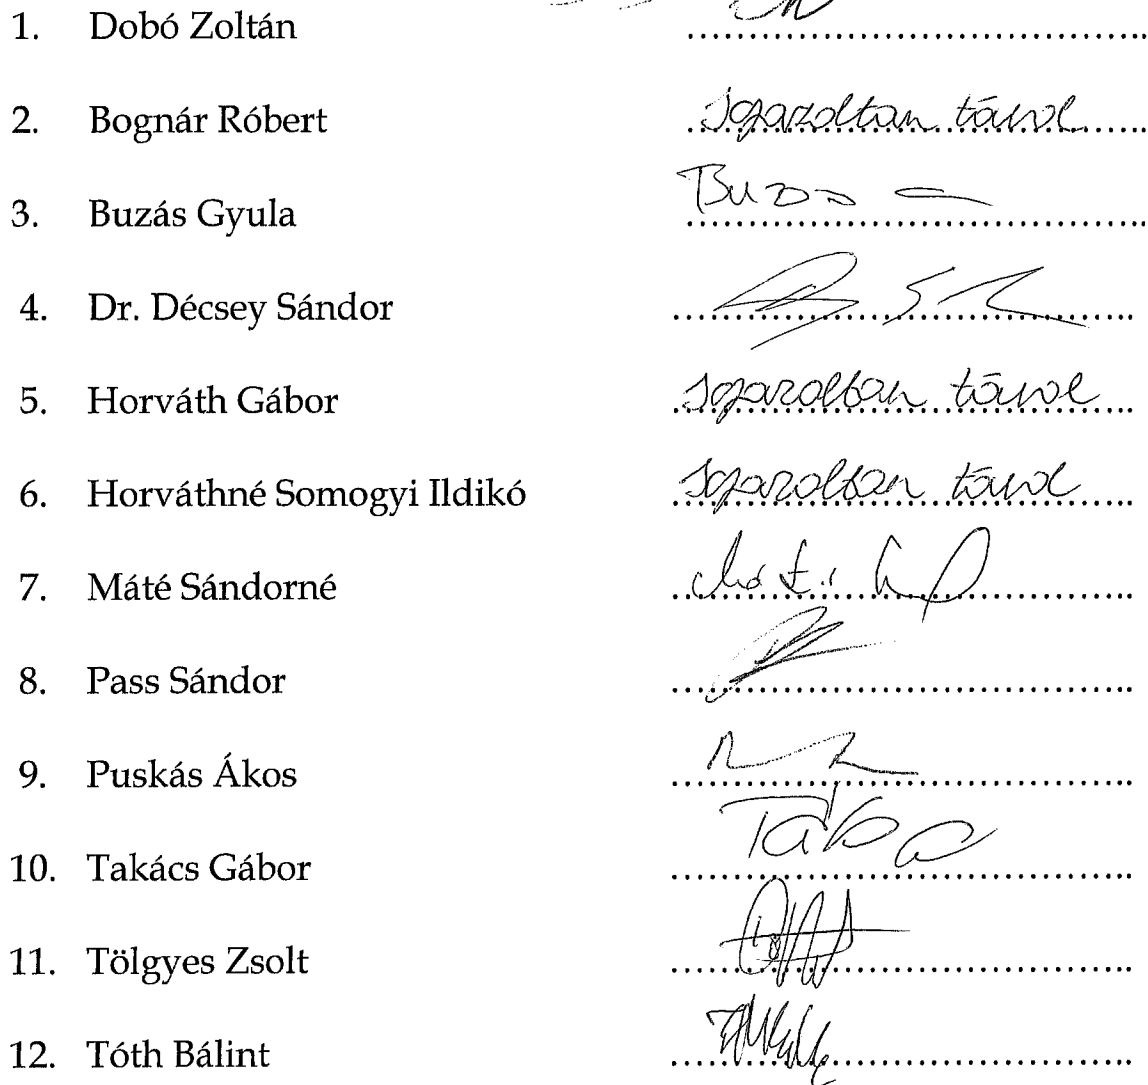 1. Dobó Zoltán
2. Bognár Róbert Igazoltan távol
3. Buzás Gyula
4. Dr. Décsey Sándor
5. Horváth Gábor Igazoltan távol
6. Horváthné Somogyi Ildikó Igazoltan távol
7. Máté Sándorné
8. Pass Sándor
9. Puskás Ákos
10. Takács Gábor
11. Tölgyes Zsolt
12. Tóth Bálint